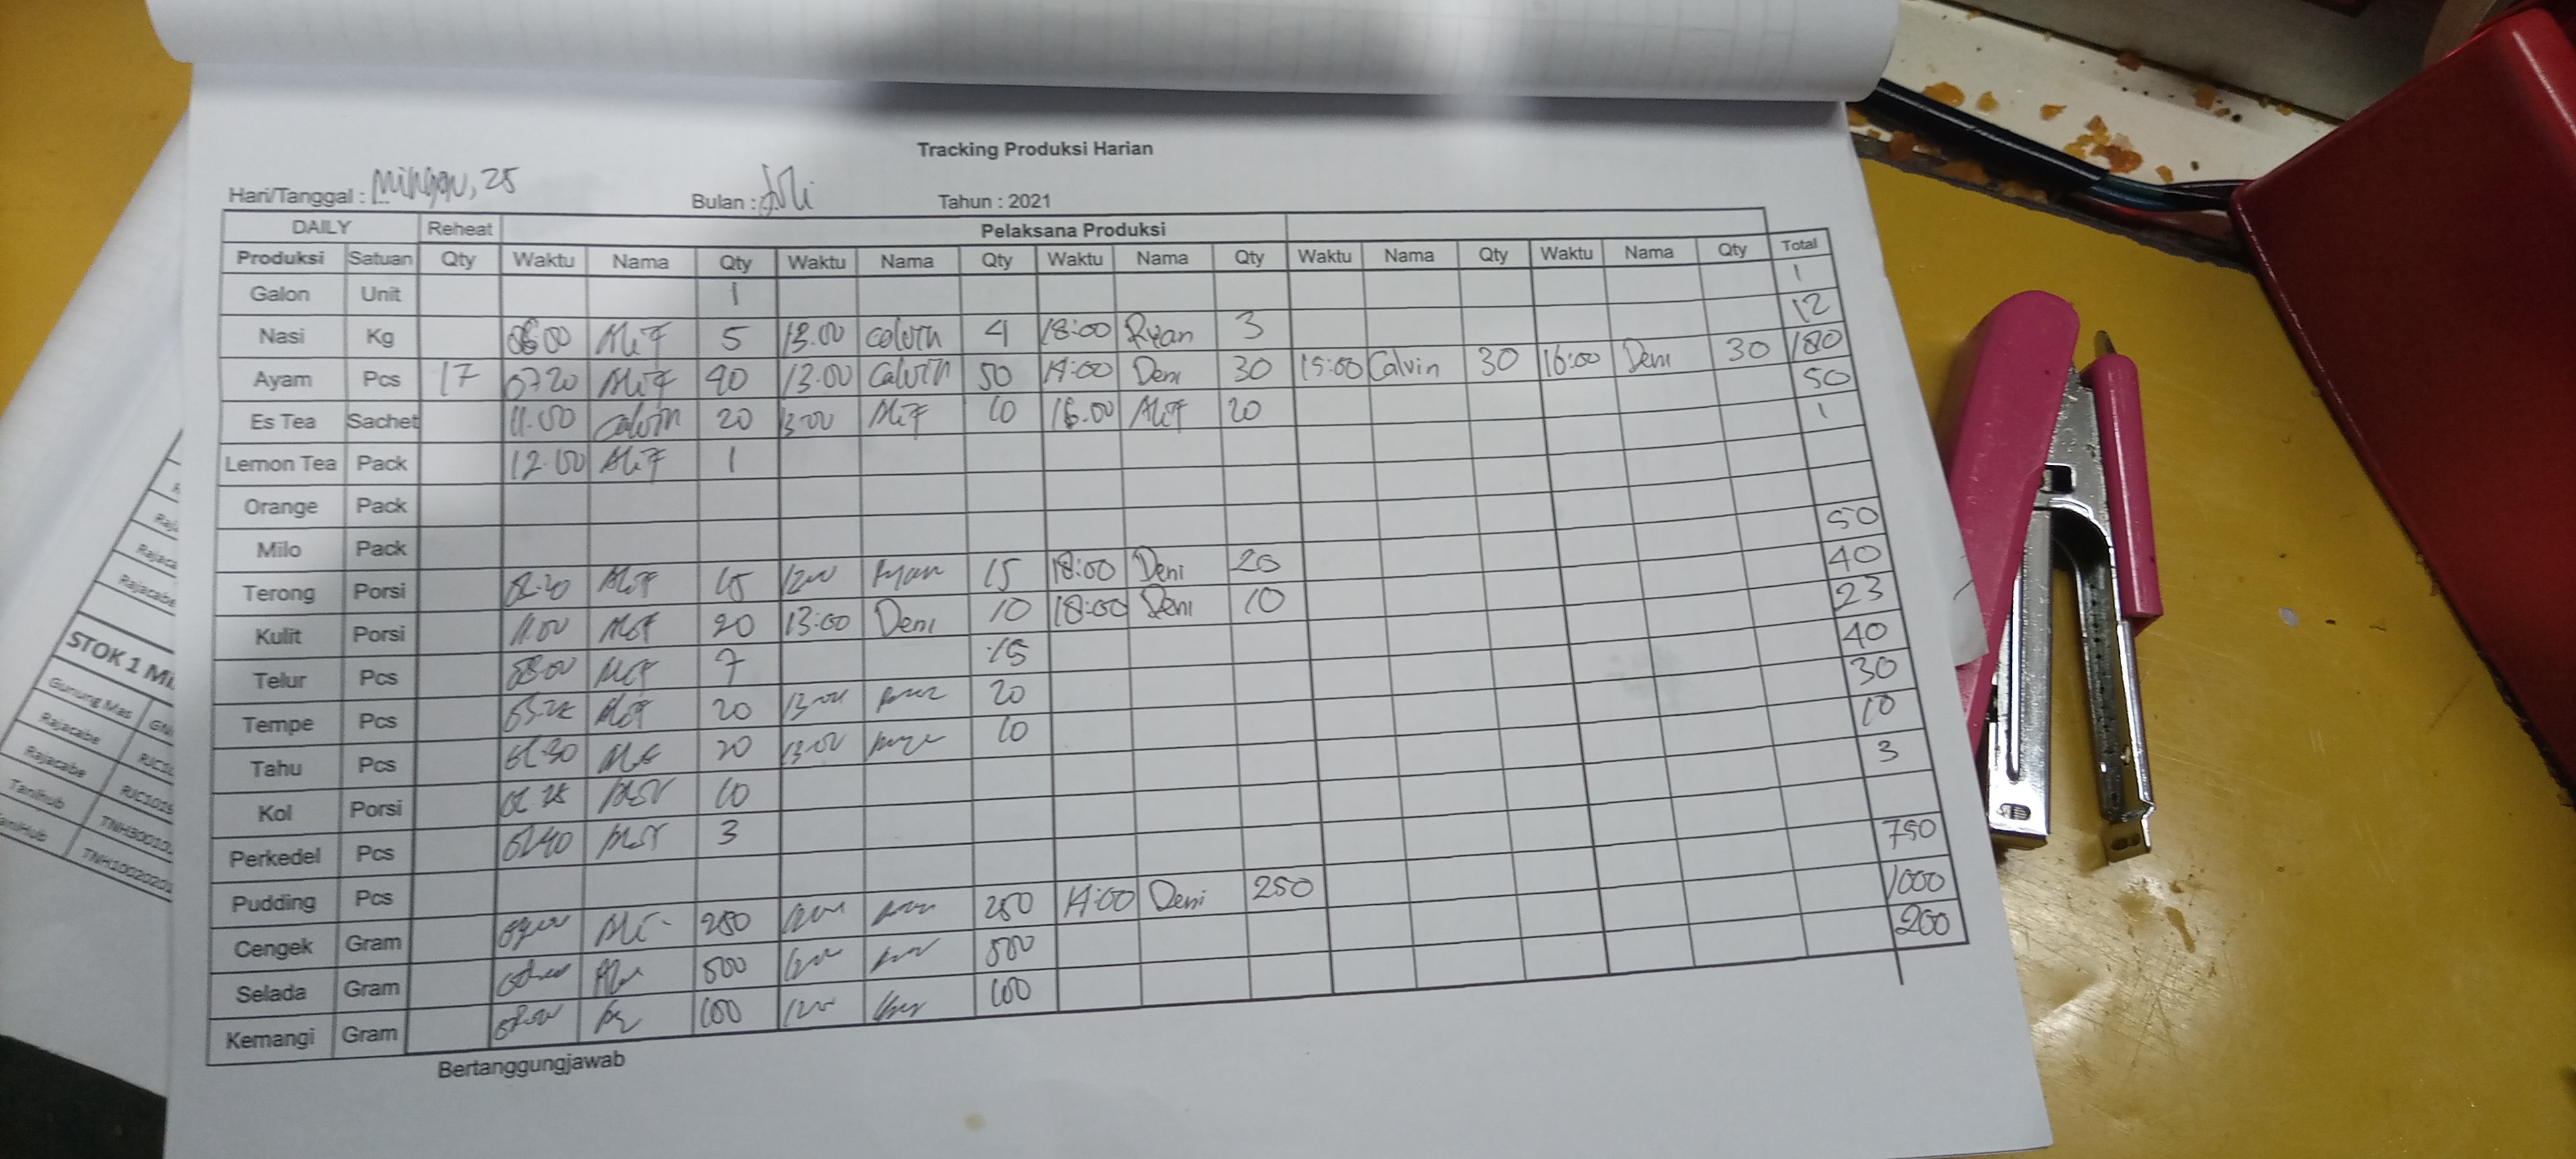 Tracking Produksi Harian
Hari/Tanggal : Minggu, 25 Bulan : Juli Tahun : 2021
DAILY Reheat Pelaksana Produksi
Produksi Satuan Qty Waktu Nama Qty Waktu Nama Qty Waktu Nama Qty Waktu Nama Qty Waktu Nama Qty Total
Galon Unit 1 1
Nasi Kg 5 13.00 Calvin 4 18:00 Ryan 3 12
Ayam Pcs 17 0720 Alif 40 13.00 Calvin 50 14:00 Deni 30 15:00 Calvin 30 16:00 Deni 30 180
Es Tea Sachet 11.00 Calvin 20 13.00 Alif 10 16.00 Alif 20 50
Lemon Tea Pack 12.00 Alif 1 1
Orange Pack
Milo Pack
Terong Porsi Alif 15 1200 Ryan 15 18:00 Deni 20 50
Kulit Porsi 11.00 Alif 20 13:00 Deni 10 18:00 Deni 10 40
Telur Pcs 08.00 Alif 7 15 23
Tempe Pcs Alif 20 13.00 20 40
Tahu Pcs Alif 20 13.00 10 30
Kol Porsi 10 10
Perkedel Pcs 3 3
Pudding Pcs
Cengek Gram 250 250 14:00 Deni 250 750
Selada Gram 500 500 1000
Kemangi Gram 100 100 200
Bertanggungjawab
STOK 1 MI
Gunung Mas GN
Rajacabe RJC1
Rajacabe RJC101
Tanihub TNH30010
TaniHub TNH1002020